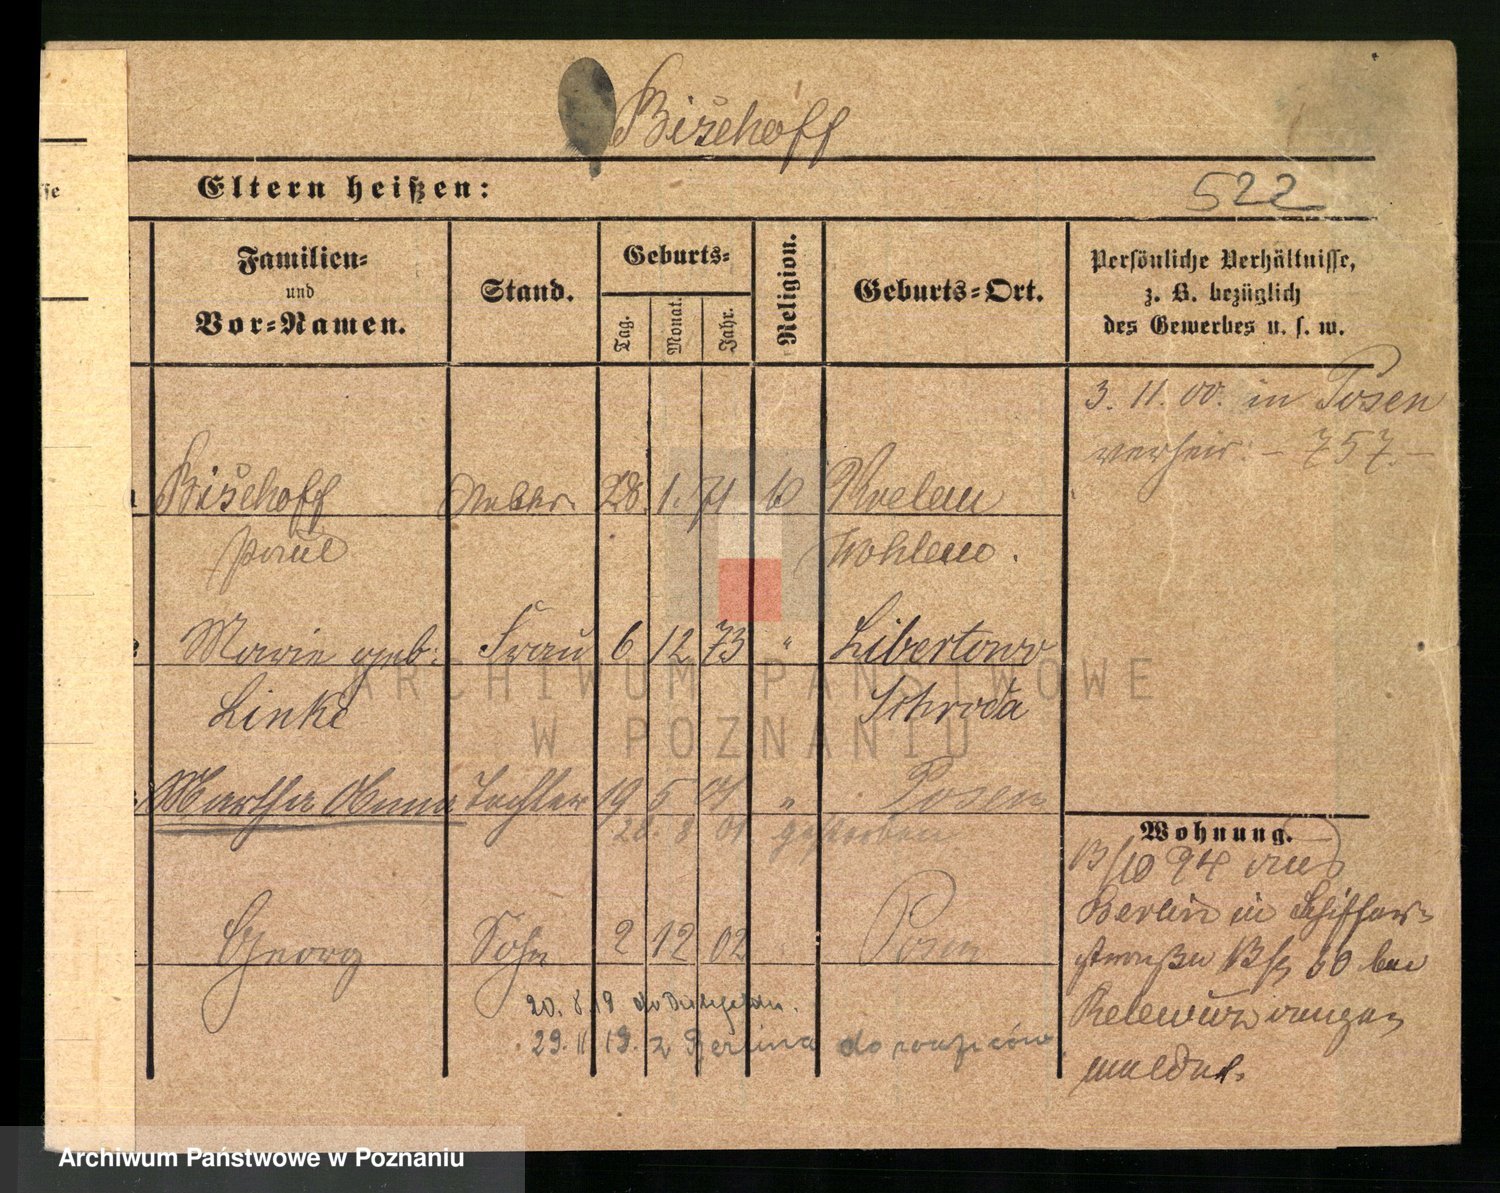 Bischoff
se
Eltern heißen:
522
Familien=
und
Vor=Namen.
Stand.
Geburts=
Tag.
Monat.
Jahr.
Religion.
Geburts=Ort.
Persönliche Verhältnisse,
z. B. bezüglich
des Gewerbes u. s. w.
3. 11. 00. in Posen
verheir. – 757. –
Bischoff 28. 1. 71
Paul Wohlau.
Marie geb: Frau 6 12 73 " Libertowo
Linke Schroda
Martha Anna Tochter 19 5 01 " Posen
20. 8 01. gestorben.
Wohnung.
94 aus
Berlin in Schiffer=
straße 10 bei
Georg Sohn 2 12 02 Posen
20. 8. 19 do
29. 11. 19. z Berlina do rodziców.
gemeldet.
ARCHIWUM PAŃSTWOWE
W POZNANIU
Archiwum Państwowe w Poznaniu